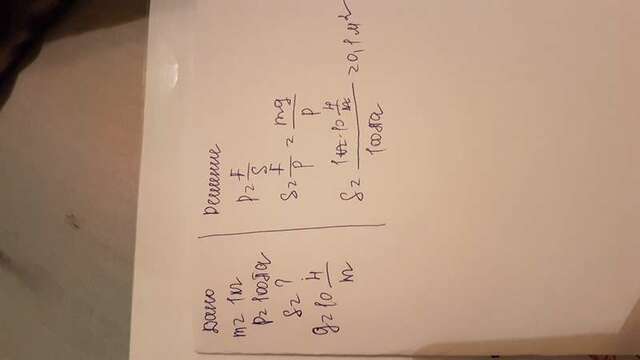 Дано
m = 1кг
p = 100Па
S = ?
g = 10 Н/кг
Решение
p = F/S
S = F/p = mg/p
S = 1кг·10 Н/кг / 100Па = 0,1 м²